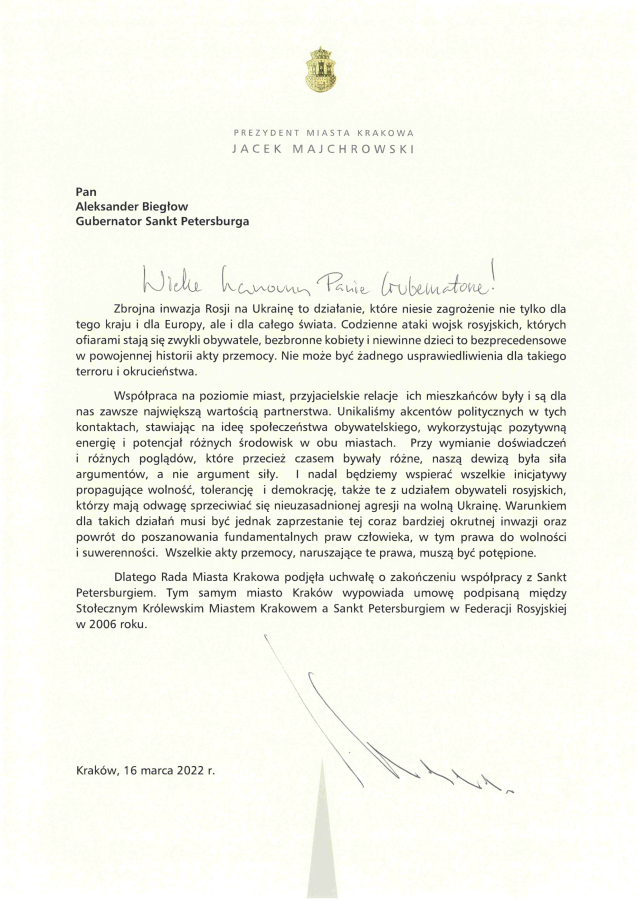 PREZYDENT MIASTA KRAKOWA
JACEK MAJCHROWSKI
Pan
Aleksander Biegłow
Gubernator Sankt Petersburga
Wielce Szanowny Panie Gubernatorze!
Zbrojna inwazja Rosji na Ukrainę to działanie, które niesie zagrożenie nie tylko dla
tego kraju i dla Europy, ale i dla całego świata. Codzienne ataki wojsk rosyjskich, których
ofiarami stają się zwykli obywatele, bezbronne kobiety i niewinne dzieci to bezprecedensowe
w powojennej historii akty przemocy. Nie może być żadnego usprawiedliwienia dla takiego
terroru i okrucieństwa.
Współpraca na poziomie miast, przyjacielskie relacje ich mieszkańców były i są dla
nas zawsze największą wartością partnerstwa. Unikaliśmy akcentów politycznych w tych
kontaktach, stawiając na ideę społeczeństwa obywatelskiego, wykorzystując pozytywną
energię i potencjał różnych środowisk w obu miastach. Przy wymianie doświadczeń
i różnych poglądów, które przecież czasem bywały różne, naszą dewizą była siła
argumentów, a nie argument siły. I nadal będziemy wspierać wszelkie inicjatywy
propagujące wolność, tolerancję i demokrację, także te z udziałem obywateli rosyjskich,
którzy mają odwagę sprzeciwiać się nieuzasadnionej agresji na wolną Ukrainę. Warunkiem
dla takich działań musi być jednak zaprzestanie tej coraz bardziej okrutnej inwazji oraz
powrót do poszanowania fundamentalnych praw człowieka, w tym prawa do wolności
i suwerenności. Wszelkie akty przemocy, naruszające te prawa, muszą być potępione.
Dlatego Rada Miasta Krakowa podjęła uchwałę o zakończeniu współpracy z Sankt
Petersburgiem. Tym samym miasto Kraków wypowiada umowę podpisaną między
Stołecznym Królewskim Miastem Krakowem a Sankt Petersburgiem w Federacji Rosyjskiej
w 2006 roku.
Kraków, 16 marca 2022 r.